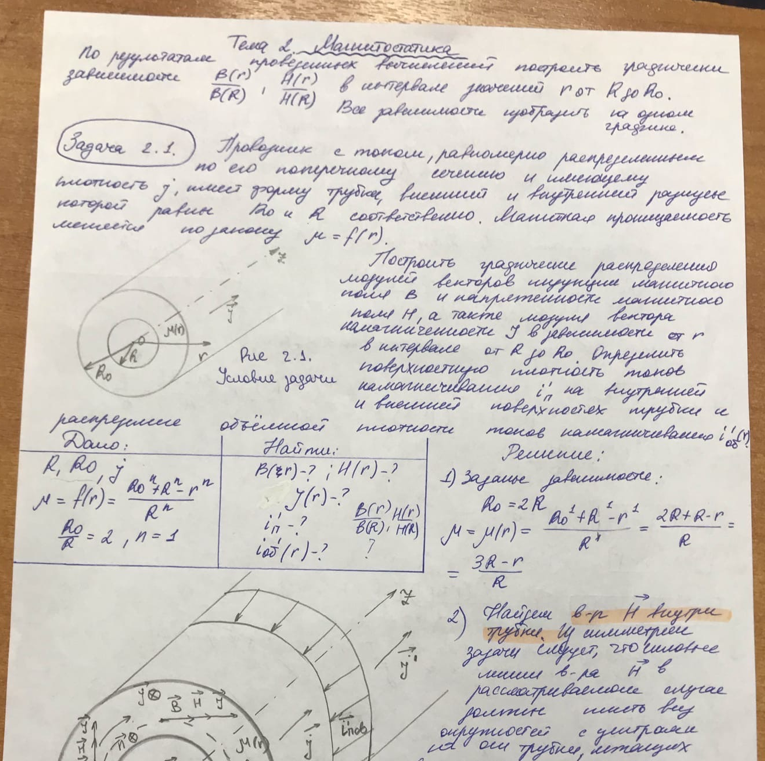 Тема 2. Магнитостатика
По результатам проведенных вычислений построить графически
зависимости B(r)/B(R) ; H(r)/H(R) в интервале значений r от R до Ro.
Все зависимости изобразить на одном
графике.
Задача 2.1. Проводник с током, равномерно распределенным
по его поперечному сечению и имеющему
плотность j, имеет форму трубки, внешний и внутренний радиусы
которой равны Ro и R соответственно. Магнитная проницаемость
меняется по закону μ = f(r).
Построить графические распределения
модулей векторов индукции магнитного
поля B и напряженности магнитного
поля H, а также модуля вектора
намагниченности J в зависимости от r
в интервале от R до Ro. Определить
поверхностную плотность токов
намагничивания i'п на внутренней
и внешней поверхностях трубки и
распределение объёмной плотности токов намагничивания i'об(r).
z
j
μ(r)
O
R
Ro
r
Рис 2.1.
Условие задачи
Дано:
R, Ro, j
μ = f(r) = (Ro^n + R^n - r^n)/R^n
Ro/R = 2, n = 1
Найти:
B(r)-? ; H(r)-?
J(r)-?
i'п-? B(r)/B(R) ; H(r)/H(R)
i'об(r)-? ?
Решение:
1) Заданные зависимости:
Ro = 2R
μ = μ(r) = (Ro^1 + R^1 - r^1)/R^1 = (2R+R-r)/R =
= (3R-r)/R
2) Найдем в-р H внутри
трубки. Из симметрии
задачи следует, что силовые
линии в-ра H в
рассматриваемом случае
должны иметь вид
окружностей с центрами
на оси трубки, лежащих
z
j'
j ⊗ B H J
i пов
μ(r)
j
n
J
H